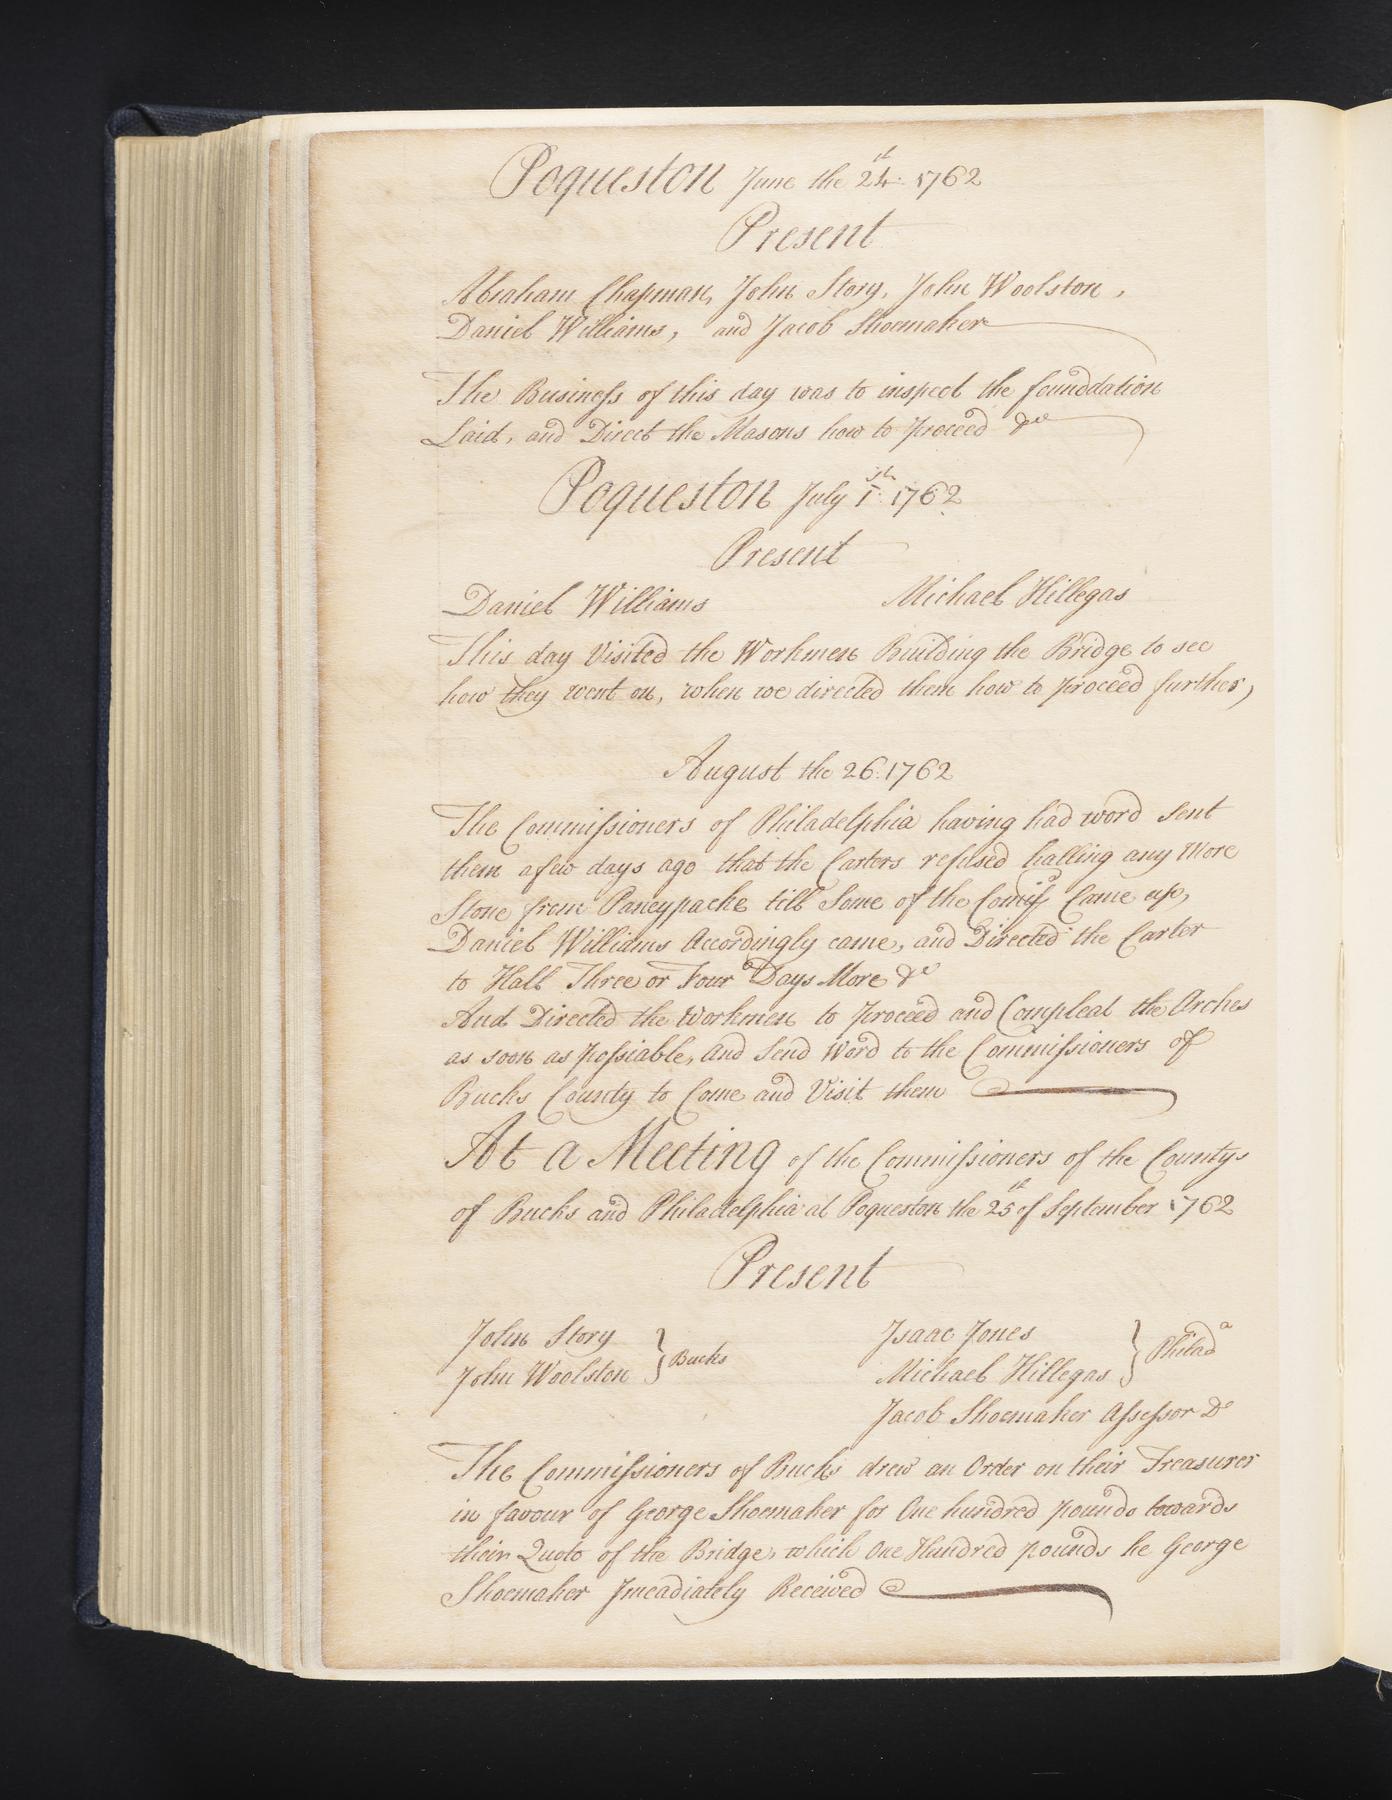 Poqueston June the 24.th 1762
Present
Abraham Chapman, John Story, John Woolston,
Daniel Williams, and Jacob Shoemaker
The Business of this day was to inspect the founddation
Laid, and Direct the Masons how to proceed &c
Poqueston July 1.st 1762
Present
Daniel Williams Michael Hillegas
This day Visited the Workmen Building the Bridge to see
how they went on, when we directed them how to proceed further,
August the 26. 1762
The Commissioners of Philadelphia having had word Sent
them afew days ago that the Carters refused halling any More
Stone from Paneypacke till Some of the Comiss Came up,
Daniel Williams Accordingly came, and Directed the Carter
to Hall Three or Four Days More &c
And Directed the Workmen to proceed and Compleat the Arches
as soon as possiable, And Send Word to the Commissioners of
Bucks County to Come and Visit them
At a Meeting of the Commissioners of the Countys
of Bucks and Philadelphia at Poqueston the 25th of September 1762
Present
John Story } Bucks Isaac Jones
John Woolston Michael Hillegas } Philada
Jacob Shoemaker Assessor Do
The Commissioners of Bucks drew an Order on their Treasurer
in favour of George Shoemaker for One hundred pounds towards
their Quoto of the Bridge, which One Hundred pounds he George
Shoemaker Imeadiately Received